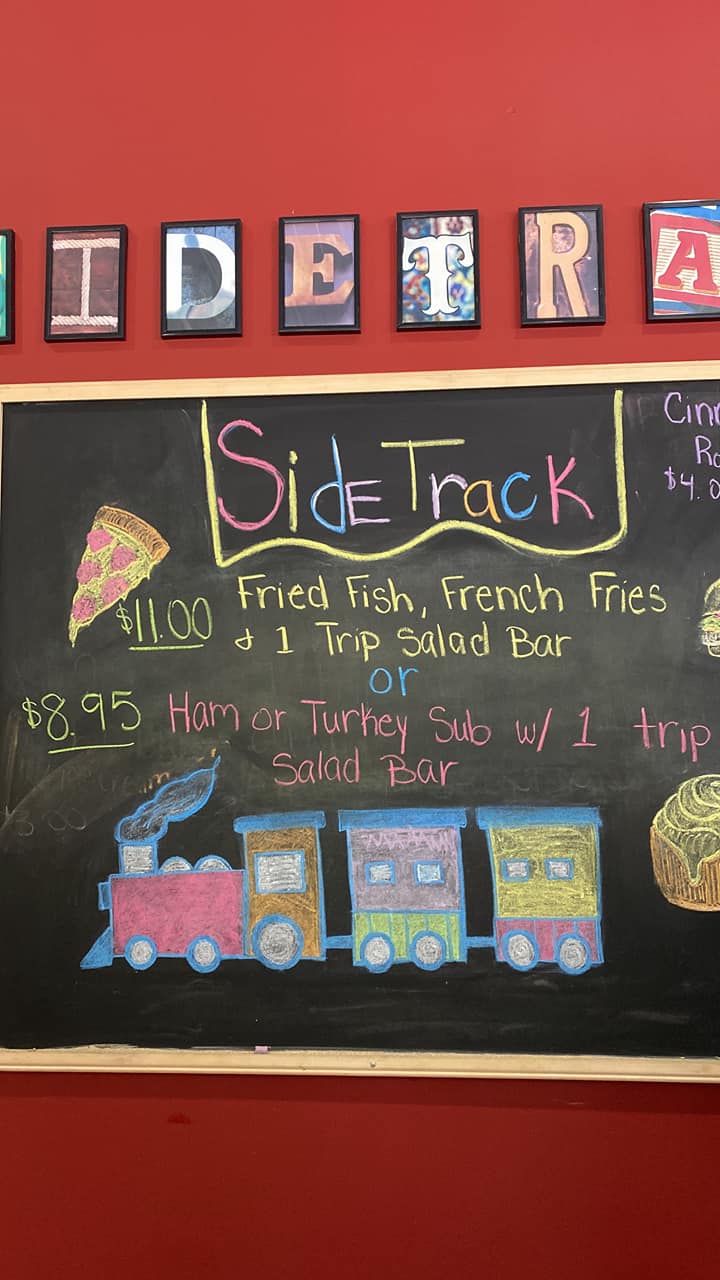 I D E T R A
SideTrack
Cin
$4.0
$11.00 Fried Fish, French Fries
& 1 Trip Salad Bar
or
$8.95 Ham or Turkey Sub w/ 1 trip
Salad Bar